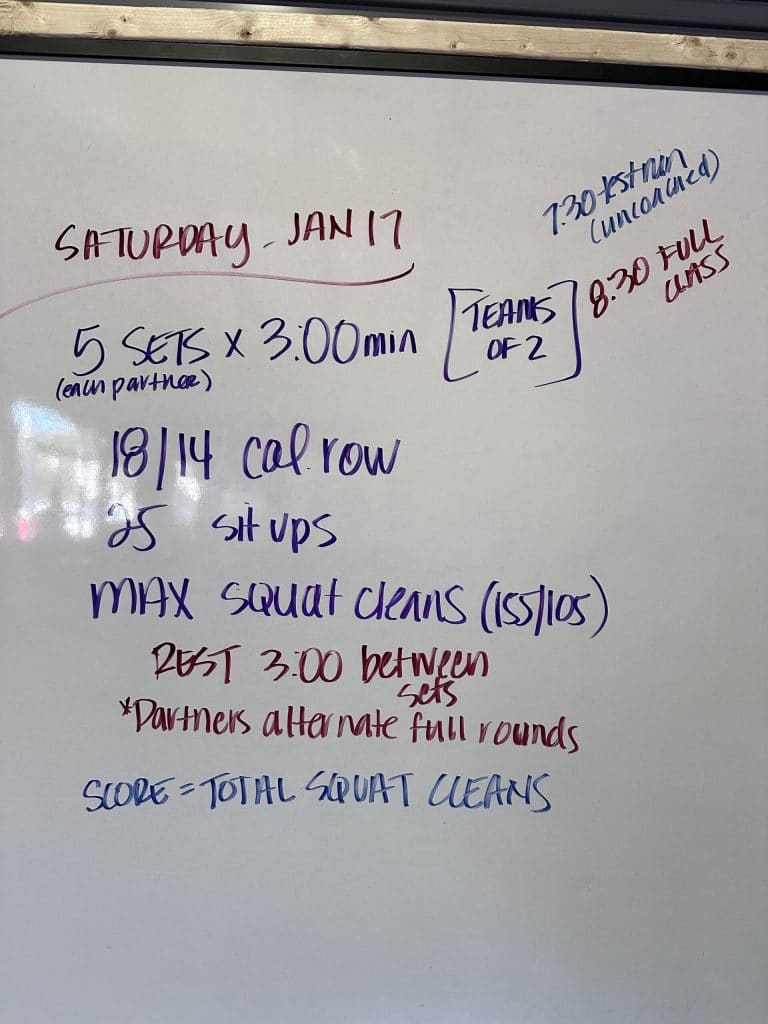 7:30 test run
(uncoached)
SATURDAY - JAN 17
8:30 FULL
CLASS
5 SETS x 3:00 min
(each partner)
[TEAMS
OF 2]
18/14 cal. row
25 sit ups
MAX squat cleans (155/105)
REST 3:00 between
sets
*Partners alternate full rounds
SCORE = TOTAL SQUAT CLEANS